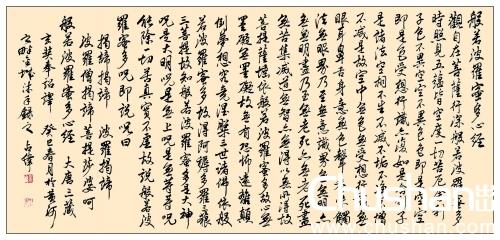 般若波羅蜜多心經
觀自在菩薩行深般若波羅蜜多
時照見五蘊皆空度一切苦厄舍利
子色不異空空不異色色即是空空
即是色受想行識亦復如是舍利子
是諸法空相不生不滅不垢不淨不增
不減是故空中無色無受想行識無
眼耳鼻舌身意無色聲香味觸
法無眼界乃至無意識界無無明亦
無無明盡乃至無老死亦無老死盡
無苦集滅道無智亦無得以無所得故
菩提薩埵依般若波羅蜜多故心無
罣礙無罣礙故無有恐怖遠離顛
倒夢想究竟涅槃三世諸佛依般
若波羅蜜多故得阿耨多羅三藐
三菩提故知般若波羅蜜多是大神
咒是大明咒是無上咒是無等等咒
能除一切苦真實不虛故說般若波
羅蜜多咒即說咒曰
揭諦揭諦 波羅揭諦
波羅僧揭諦 菩提莎婆呵
般若波羅蜜多心經 大唐三藏
玄奘奉詔譯 癸巳春月於黄河
沐手錄之
Chushan.com